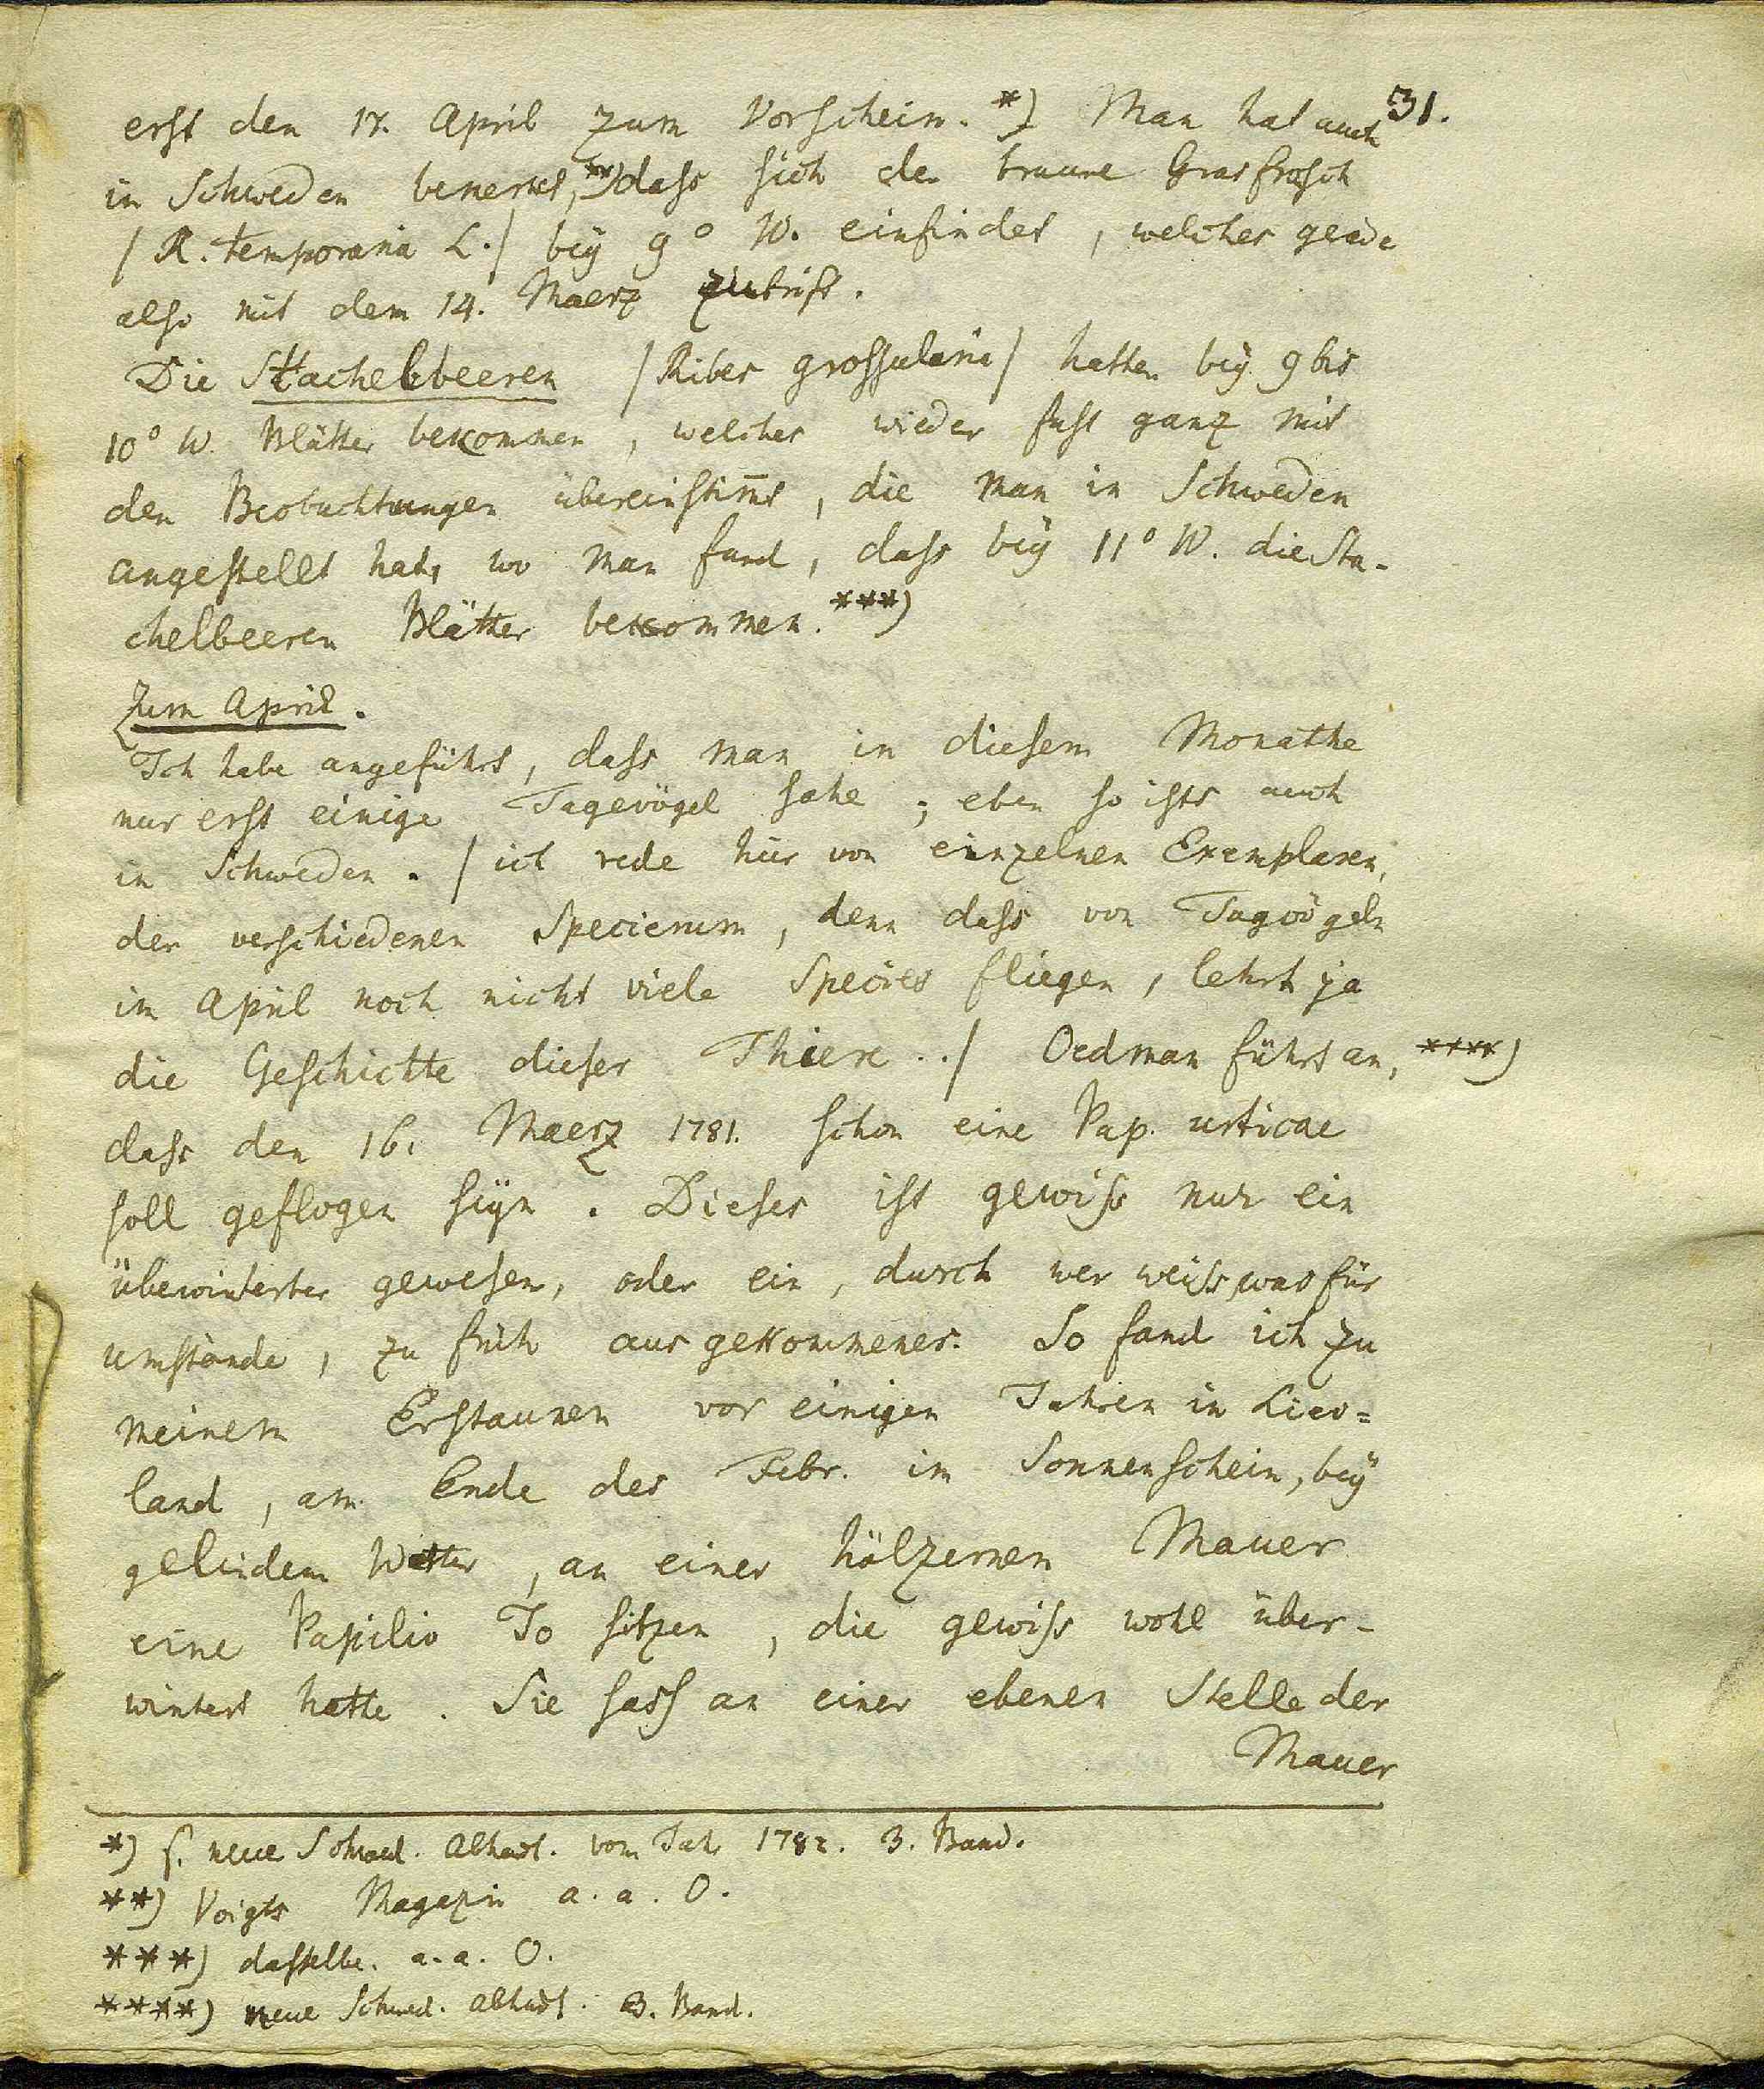 31.
erst den 17. April zum Vorschein. *) Man hat auch
in Schweden bemerkt, **) dass sich der braune Grasfrosch
/ R. temporaria L. / bey 9° W. einfindet, welches gerade
also mit dem 14. Maerz zutrift.
Die Stachelbeeren / Ribes grossularia / hatten bey 9 bis
10° W. Blätter bekommen, welches wieder fast ganz mit
den Beobachtungen übereinstim̄t, die man in Schweden
angestellt hat, wo man fand, dass bey 11° W. die Sta-
chelbeeren Blätter bekommen. ***)
Zum April.
Ich habe angeführt, dass man in diesem Monathe
nur erst einige Tagevögel sahe; eben so ists auch
in Schweden. / ich rede hier von einzelnen Exemplaren,
der verschiedenen Specierum, denn dass von Tagvögeln
im April noch nicht viele Species fliegen, lehrt ja
die Geschichte dieser Thiere. . / Oedman führt an, ****)
dass den 16. Maerz 1781. schon eine Pap. urticae
soll geflogen seyn. Dieses ist gewiss nur ein
überwinterter gewesen, oder ein, durch wer weiss, was für
umstände, zu früh ausgekommenes. So fand ich zu
meinem Erstaunen vor einigen Jahren in Liev=
land, am Ende des Febr. im Sonnenschein, bey
gelindem Wetter, an einer hölzernen Mauer
eine Papilio Jo sitzen, die gewiss wohl über-
wintert hatte. Sie sass an einer ebenen Stelle der
Mauer
*) s. neue Schwed. Abhandl. vom Jahr 1782. 3. Band.
**) Voigts Magazin a. a. O.
***) dasselbe. a. a. O.
****) neue Schwed. Abhdl. 3. Band.